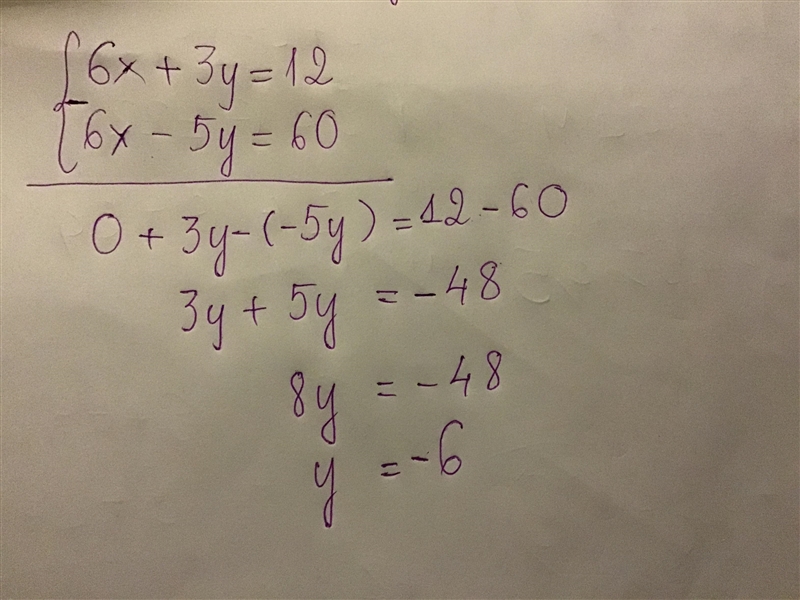 6x + 3y = 12
-
6x - 5y = 60
0 + 3y - (-5y) = 12 - 60
3y + 5y = -48
8y = -48
y = -6